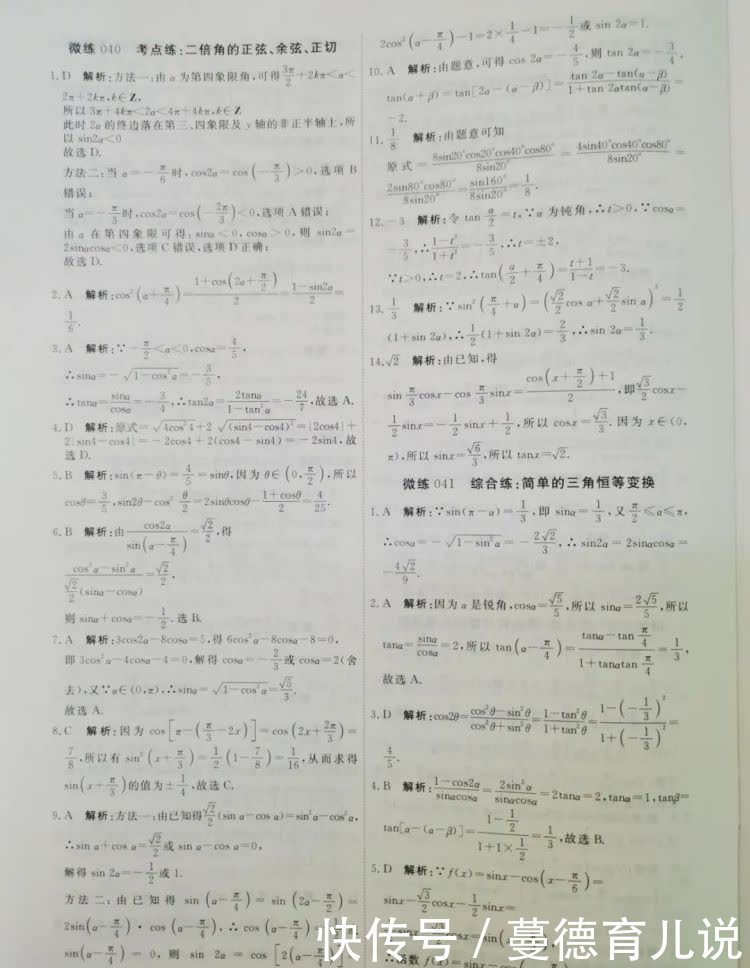 微练 040 考点练:二倍角的正弦、余弦、正切
1. D 解析:方法一:由α为第四象限角,可得3π/2+2kπ<α<
2π+2kπ,k∈Z,
所以3π+4kπ<2α<4π+4kπ,k∈Z
此时2α的终边落在第三、四象限及y轴的非正半轴上,所
以sin2α<0
故选D.
方法二:当α=-π/6时,cos2α=cos(-π/3)>0,选项B
错误;
当α=-π/3时,cos2α=cos(-2π/3)<0,选项A错误;
由α在第四象限可得:sinα<0,cosα>0,则sin2α=
2sinαcosα<0,选项C错误,选项D正确;
故选D.
2. A 解析:cos²(α+π/4)=(1+cos(2α+π/2))/2=(1-sin2α)/2=
1/6.
3. A 解析:∵-π/2<α<0,cosα=4/5,
∴sinα=-√(1-cos²α)=-3/5,
∴tanα=sinα/cosα=-3/4,∴tan2α=2tanα/(1-tan²α)=-24/7,故选A.
4. D 解析:原式=√(4cos²4)+2√((sin4-cos4)²)=|2cos4|+
2|sin4-cos4|=-2cos4+2(cos4-sin4)=-2sin4,故
选D.
5. B 解析:sin(π-θ)=4/5=sinθ,因为θ∈(0,π/2),所以
cosθ=3/5,sin2θ-cos²θ/2=2sinθcosθ-(1+cosθ)/2=4/25.
6. B 解析:由cos2α/sin(α-π/4)=√2/2,得
(cos²α-sin²α)/(√2/2(sinα-cosα))=√2/2,
则sinα+cosα=-1/2.选B.
7. A 解析:3cos2α-8cosα=5,得6cos²α-8cosα-8=0,
即3cos²α-4cosα-4=0,解得cosα=-2/3或cosα=2(舍
去),又∵α∈(0,π),∴sinα=√(1-cos²α)=√5/3.
故选A.
8. C 解析:因为cos[π-(π/3-2x)]=cos(2x+2π/3)=
7/8,所以有sin²(x+π/3)=1/2(1-7/8)=1/16,从而求得
sin(x+π/3)的值为±1/4,故选C.
9. A 解析:方法一:由已知得√2/2(sin α-cos α)=sin²α-cos²α,
∴sin α+cos α=√2/2或sin α-cos α=0,
解得sin 2α=-1/2或1.
方法二:由已知得sin(α-π/4)=sin(2α-π/2)=
2sin(α-π/4)·cos(α-π/4),∴cos(α-π/4)=
sin(α-π/4)=0,则sin 2α=cos[2(α-π/4)
2cos²(α-π/4)-1=2×1/4-1=-1/2或sin 2α=1.
10. A 解析:由题意,可得cos 2α=-4/5,则tan 2α=-3/4,
tan(α+β)=tan[2α-(α-β)]=(tan 2α-tan(α-β))/(1+tan 2αtan(α-β))=
-2.
11. 1/8 解析:由题意可知
原式=8sin20°cos20°cos40°cos80°/8sin20°=4sin40°cos40°cos80°/8sin20°=
2sin80°cos80°/8sin20°=sin160°/8sin20°=1/8.
12. -3 解析:令tan α/2=t,∵α为钝角,∴t>0,∵cosα=
-3/5,∴(1-t²)/(1+t²)=-3/5,∴t=±2,
∵t>0,∴t=2,∴tan(α/2+π/4)=(t+1)/(1-t)=-3.
13. 1/3 解析:∵sin²(π/4+α)=(√2/2cos α+√2/2sin α)²=1/2
(1+sin 2α),∴1/2(1+sin 2α)=2/3,∴sin 2α=1/3.
14. √2 解析:由已知,得
sin π/3 cosx-cos π/3 sinx=(cos(x+π/2)+1)/2,即√3/2cosx-
1/2sinx=-1/2sinx+1/2,所以cosx=√3/3.因为x∈(0,
π),所以sinx=√6/3,所以tanx=√2.
微练 041 综合练:简单的三角恒等变换
1. A 解析:∵sin(π-α)=1/3,即sinα=1/3,又π/2≤α≤π,
∴cosα=-√(1-sin²α)=-2√2/3,∴sin2α=2sinαcosα=
-4√2/9.
2. A 解析:因为α是锐角,cosα=√5/5,所以sinα=2√5/5,所以
tanα=sinα/cosα=2,所以tan(α-π/4)=(tanα-tan π/4)/(1+tanαtan π/4)=1/3,
故选A.
3. D 解析:cos2θ=(cos²θ-sin²θ)/(cos²θ+sin²θ)=(1-tan²θ)/(1+tan²θ)=(1-(-1/3)²)/(1+(-1/3)²)=
4/5.
4. B 解析:(1-cos2α)/sinαcosα=2sin²α/sinαcosα=2tanα=2,tanα=1,tanβ=
tan[α-(α-β)]=(1-1/2)/(1+1×1/2)=1/3,故选B.
5. D 解析:∵f(x)=sinx-cos(x-π/6)=
sinx-√3/2cosx-1/2sinx=
∴函数f(x)=sin(x-
快传号 / 蔓德育儿说